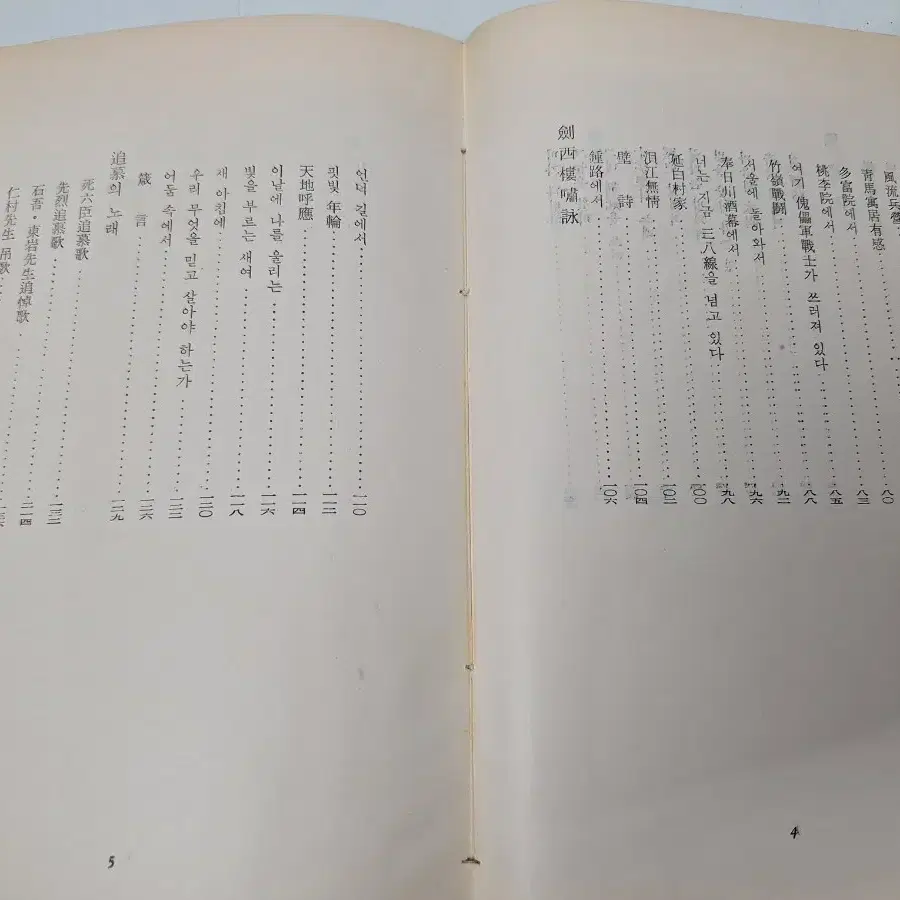 風流兵營
青馬寓居有感
多富院에서 八〇
桃李院에서 八三
여기 傀儡軍戰士가 쓰러져 있다 八五
竹嶺戰鬪 八八
서울에 돌아와서 九二
奉日州酒幕에서 九六
너는 지금 三八線을 넘고 있다 九八
延白村家 一〇〇
浿江無情 一〇二
壁 詩 一〇四
鍾路에서 一〇六
劍西樓嘯詠
4
언덕 길에서 一一〇
핏빛 年輪 一一二
天地呼應 一一四
이날에 나를 울리는 一一六
빛을 부르는 새여 一一八
새 아침에 一二〇
우리 무엇을 믿고 살아야 하는가 一二二
어둠 속에서 一二六
箴 言 一二九
追慕의 노래
死六臣追慕歌 一三二
先烈追慕歌
石吾・東岩先生追悼歌 一三六
仁村先生 弔歌
5